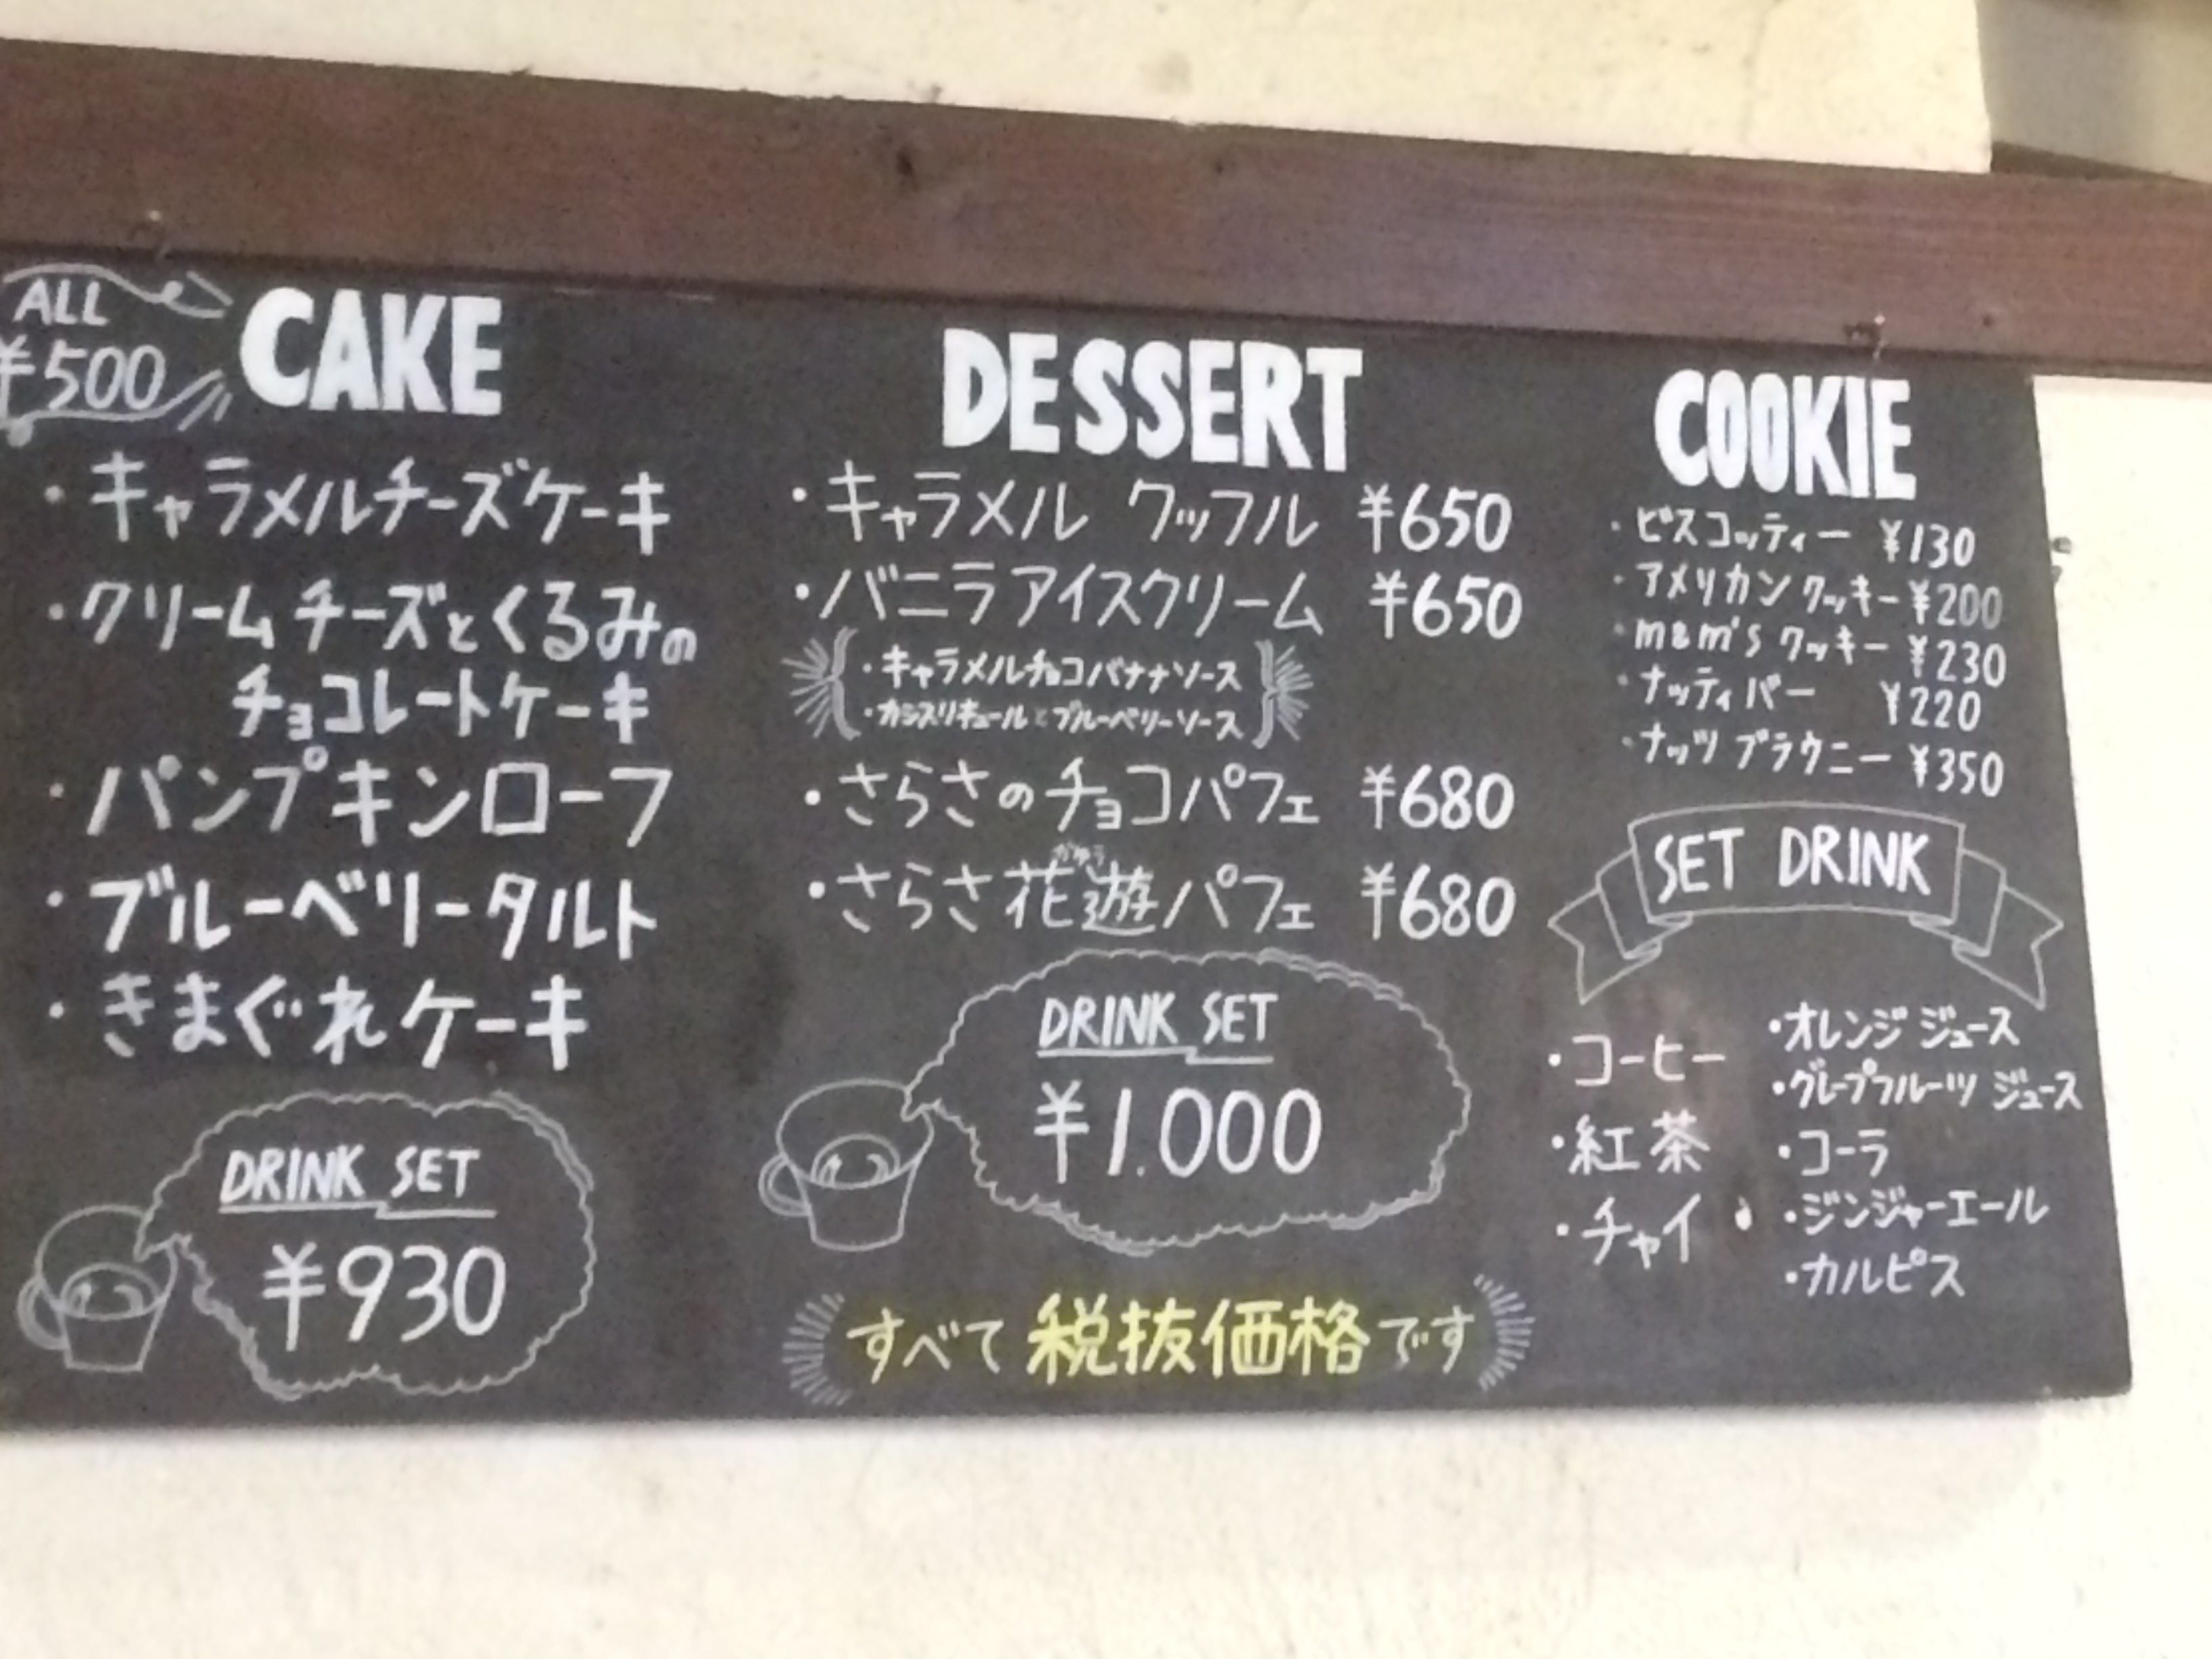 ALL
¥500
CAKE
・キャラメルチーズケーキ
・クリームチーズとくるみの
チョコレートケーキ
・パンプキンローフ
・ブルーベリータルト
・きまぐれケーキ
DRINK SET
¥930
DESSERT
・キャラメル ワッフル ¥650
・バニラアイスクリーム ¥650
・キャラメルチョコバナナソース
・カシスリキュールとブルーベリーソース
・さらさのチョコパフェ ¥680
かゆう
・さらさ花遊パフェ ¥680
DRINK SET
¥1.000
すべて税抜価格です
COOKIE
・ビスコッティー ¥130
・アメリカンクッキー ¥200
・m&m's クッキー ¥230
・ナッティバー ¥220
・ナッツブラウニー ¥350
SET DRINK
・コーヒー
・紅茶
・チャイ
・オレンジジュース
・グレープフルーツ ジュース
・コーラ
・ジンジャーエール
・カルピス